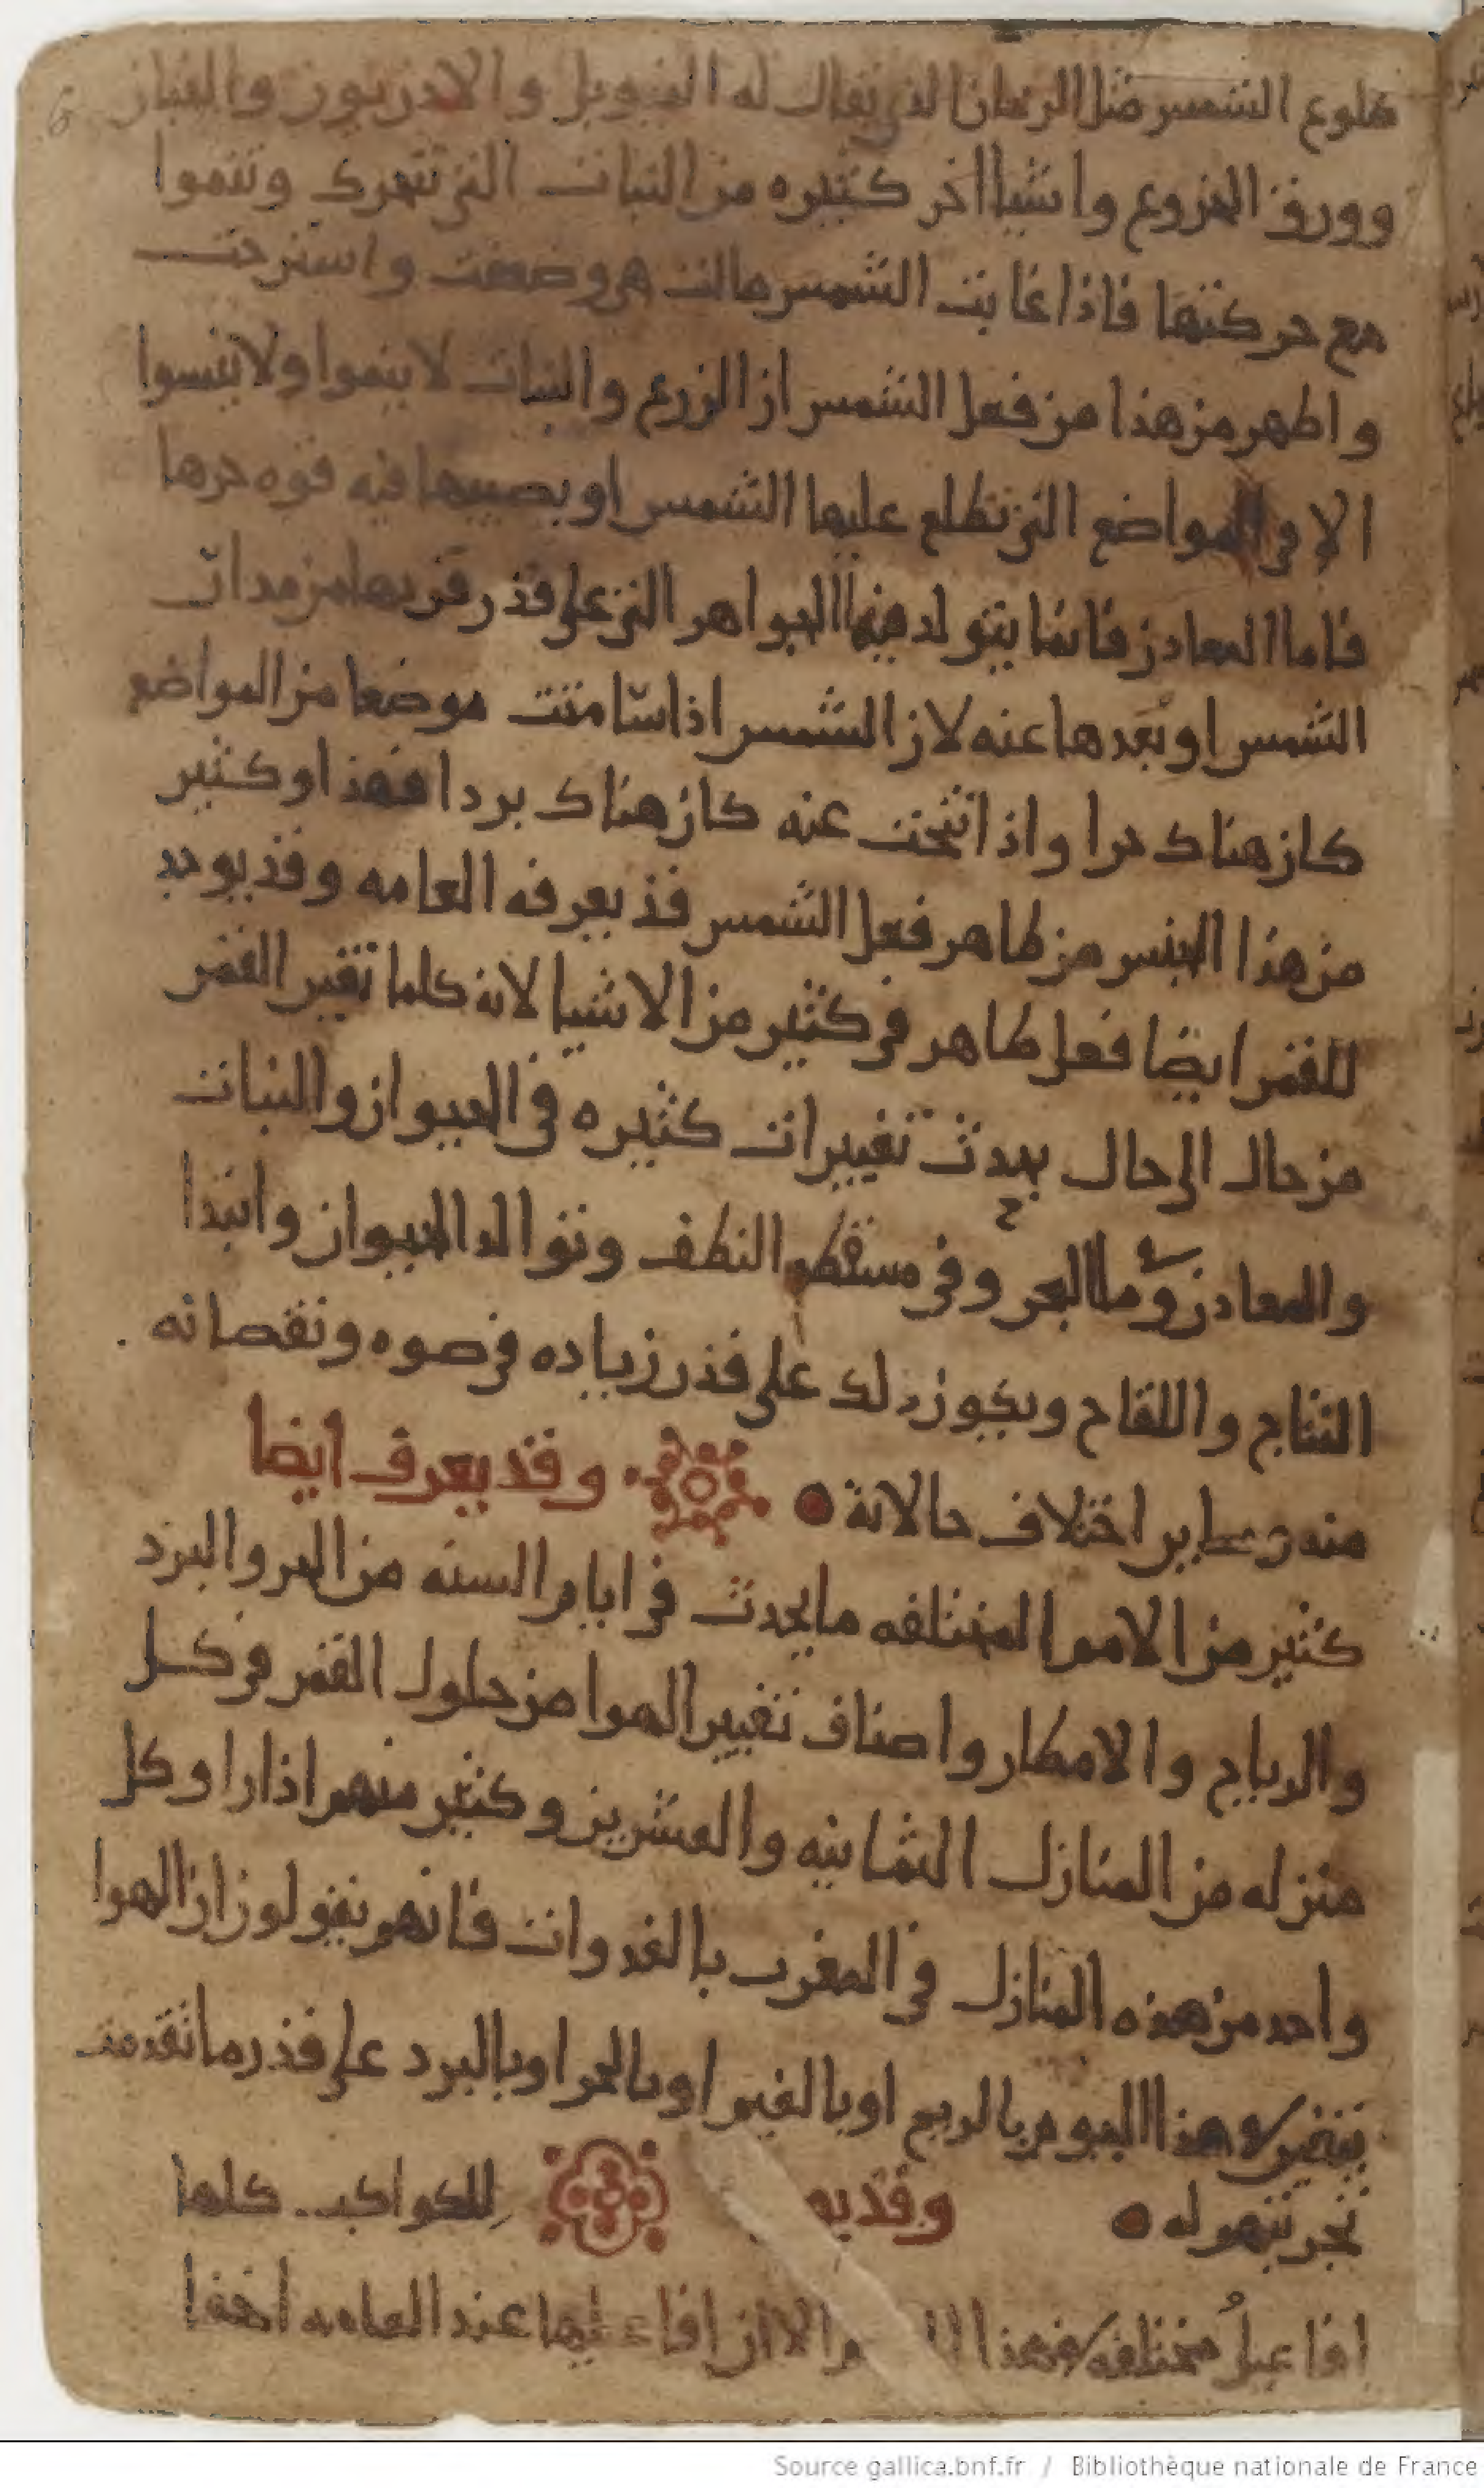 طلوع الشمس مثل الريحان الذي يقال له النيوبل والادريون والخباز
وورق الخروع واشيا اخر كثيره من النبات التي تتحرك وتنموا
مع حركتها فاذا غابت الشمس مالت هي وضعفت واسترخت
واظهر من هذا من فعل الشمس ان الزرع والنبات لا ينموا ولا ينسوا
الا في المواضع التي تطلع عليها الشمس او يصيبها فيه قوه حرها
فاما المعادن فانما يتولد فيها الجواهر التي على قدر قربها من مدار
الشمس او بعدها عنه لان الشمس اذا سامتت موضعا من المواضع
كان هناك حرا واذا تنحت عنه كان هناك بردا فهذا وكثير
من هذا الجنس من ظاهر فعل الشمس قد يعرفه العامه وقد يوجد
للقمر ايضا فعل ظاهر في كثير من الاشيا لانه كلما تغير القمر
من حال الى حال يحدث تغييرات كثيره في الحيوان والنبات
والمعادن وما البحر وفي مسقط النطف وتوالد الحيوان وابتدا
النتاج واللقاح ويكون ذلك على قدر زياده في ضوه ونقصانه
منه وسائر اختلاف حالاته وقد يعرف ايضا
كثير من الامم المختلفه ما يحدث في ايام السنه من الحر والبرد
والرياح والامطار واصناف تغيير الهوا من حلول القمر في كل
منزله من المنازل الثمانيه والعشرين وكثير منهم اذا راوا كل
واحد من هذه المنازل في المغرب بالغدوات فانهم يقولون ان الهوا
يتغير هذا اليوم بالريح او بالغيم او بالحر او بالبرد على قدر ما تقدمت
تجربتهم له وقد يو للكواكب كلها
افاعيل مختلفه هذا الا ان افاعيلها عند العامه اخفا
Source gallica.bnf.fr / Bibliothèque nationale de France